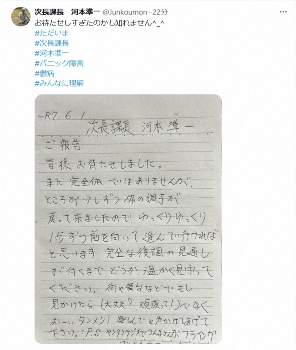 次長課長 河本準一 @Junkoumon・22分
お待たせしすぎたのかも知れません^_^
#ただいま
#次長課長
#河本準一
#パニック障害
#鬱病
#みんなに理解
R7 6. 1
次長課長 河本準一
ご報告
皆様、お待たせしました。
まだ完全体ではありませんが、
ところが少しずつ体の調子が
戻って来ましたので ゆっくりゆっくり
1歩ずつ前を向いて進んで行ければ
と思います。完全な復調の見通し
が付くまでどうか温かく見守って
ください。街や舞台などでもし
見かけたら(大丈夫? 頑張って!)でなく
おーい、タンメン!